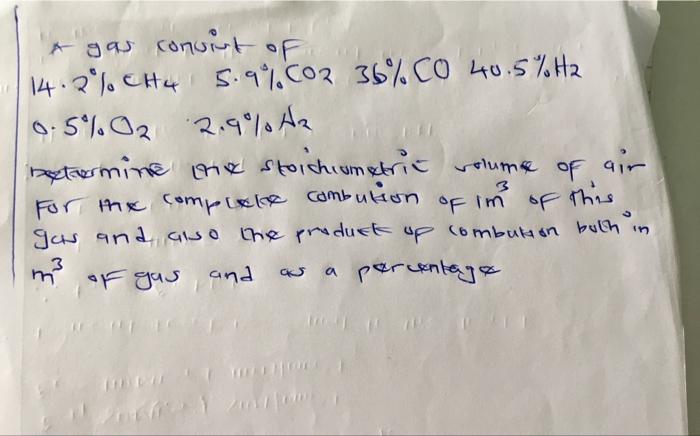 A gas consist of
14.2% CH4 5.9% CO2 36% CO 40.5% H2
0.5% O2 2.9% N2
Determine the stoichiometric volume of air
For the complete combution of 1m³ of this
gas and also the product of combution both in
m³ of gas and as a percentage